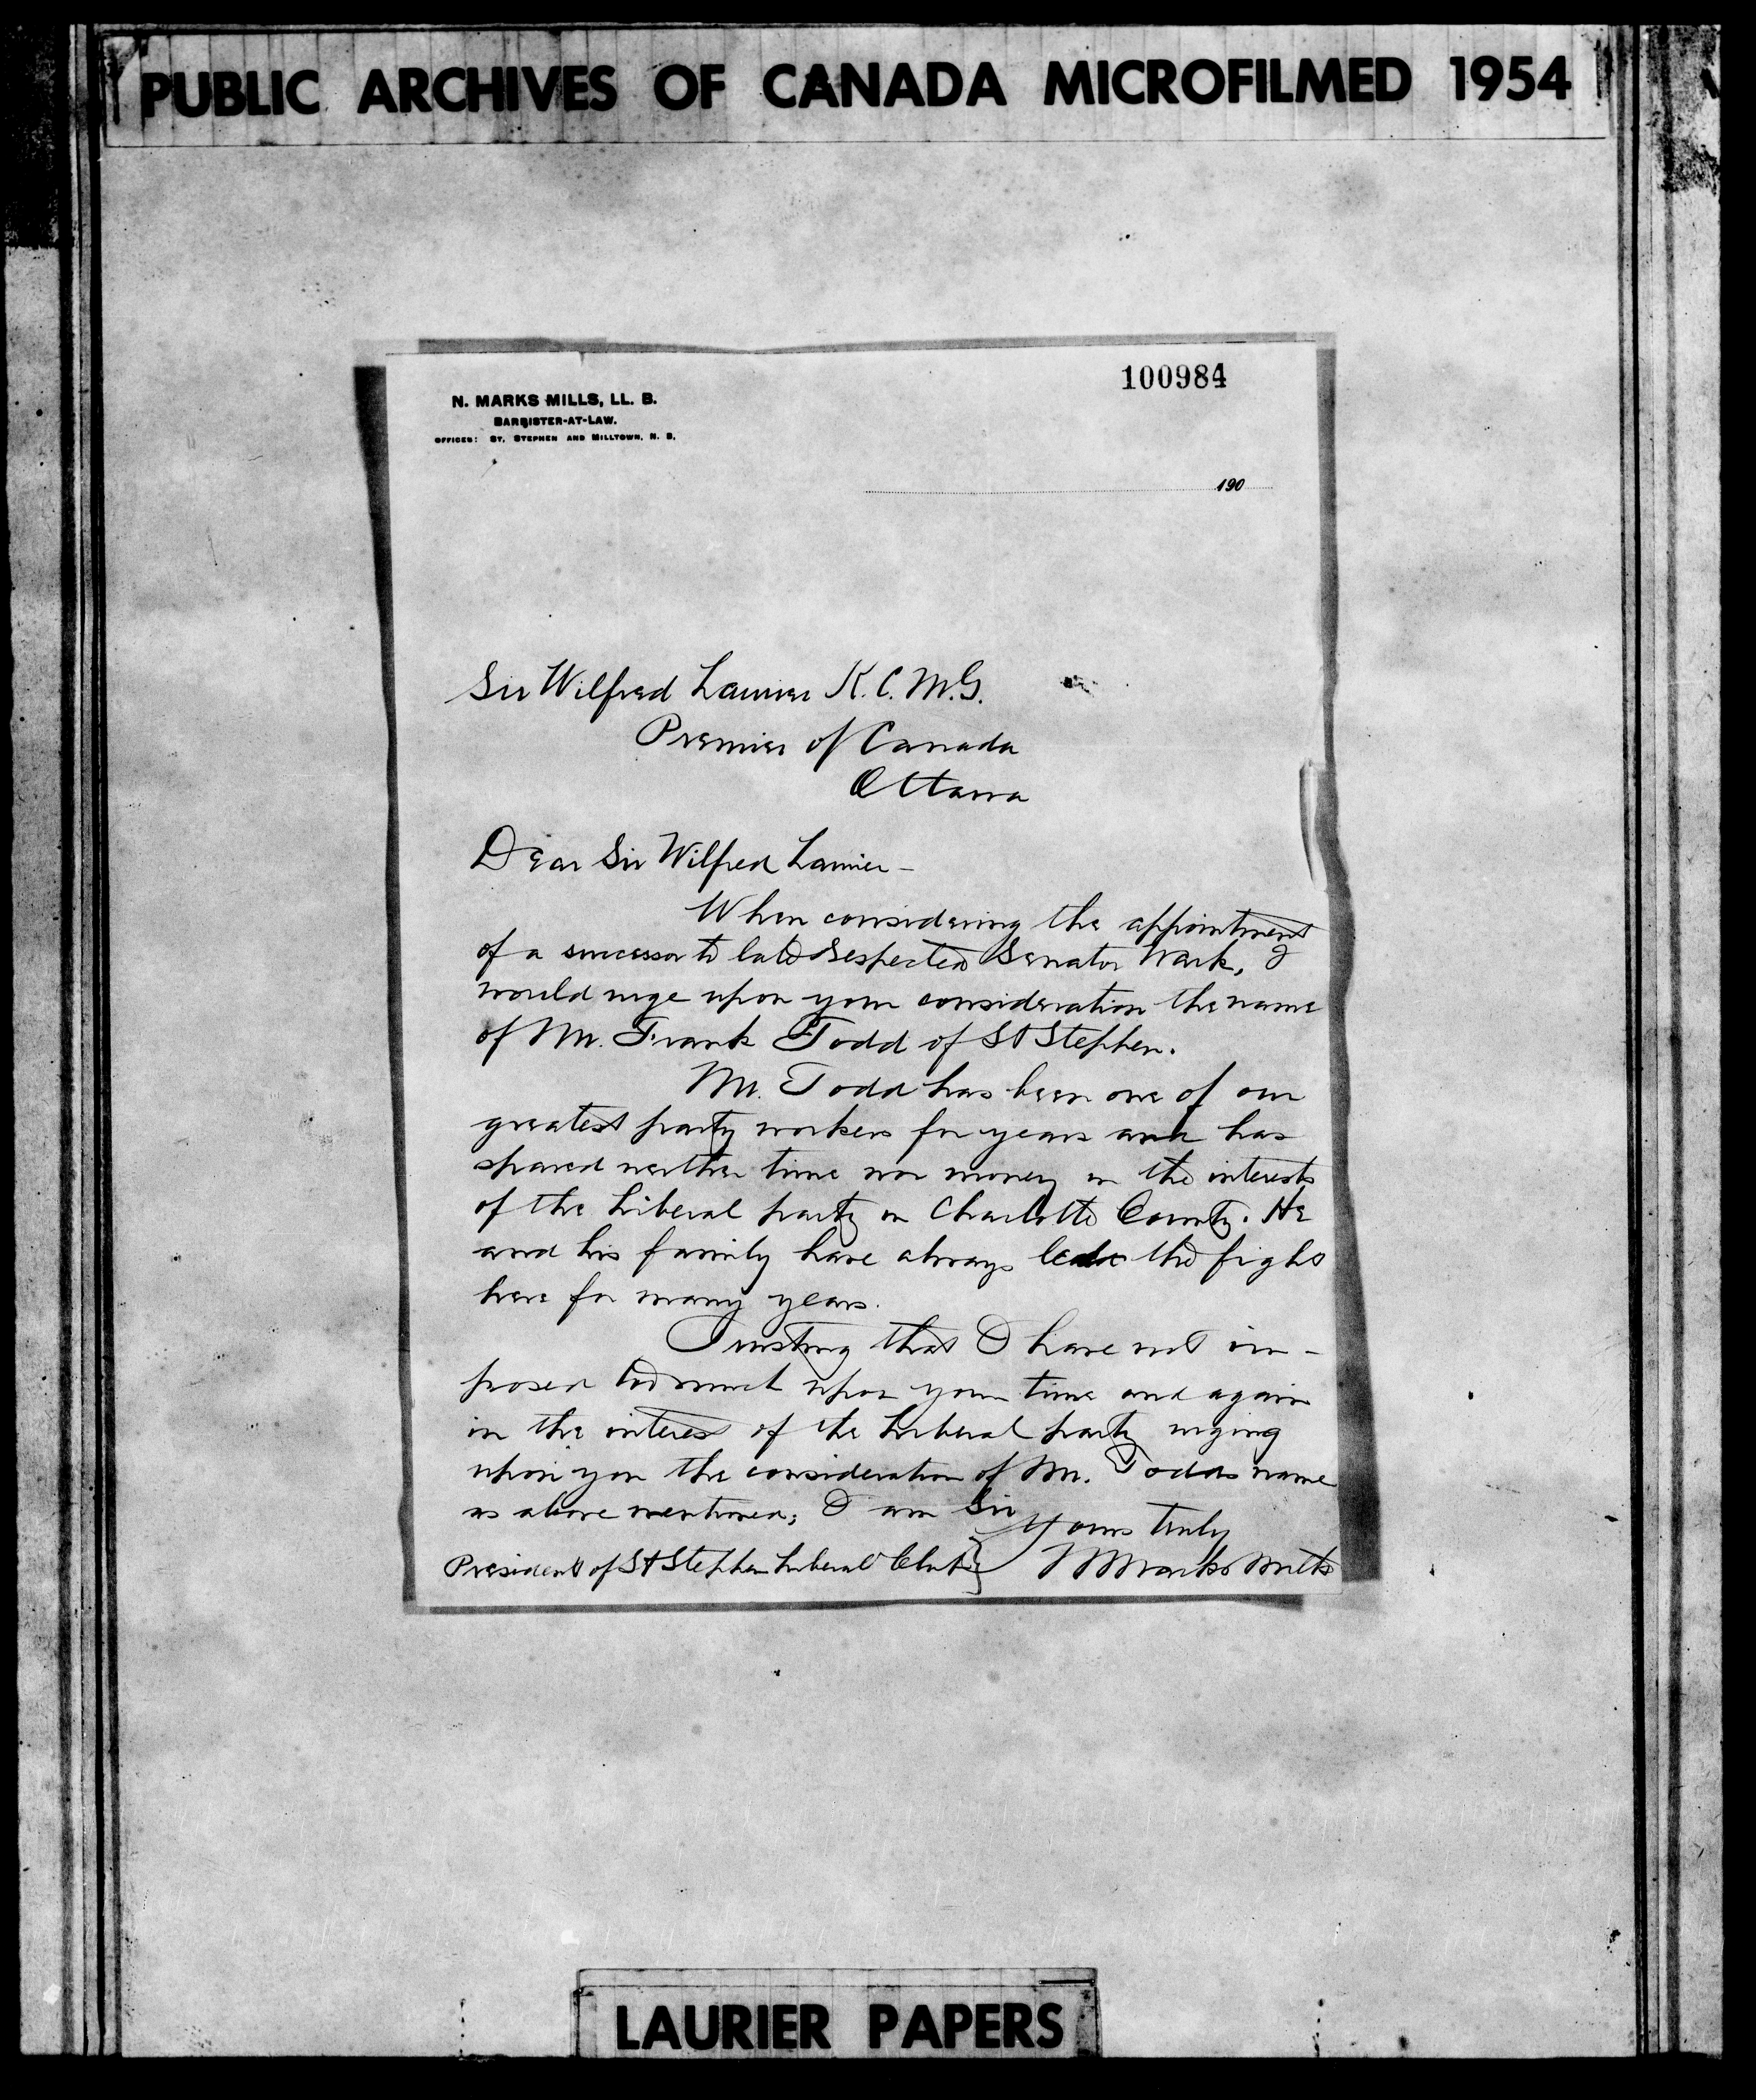 PUBLIC ARCHIVES OF CANADA MICROFILMED 1954
100984
N. MARKS MILLS, LL. B.
BARRISTER-AT-LAW.
OFFICES: ST. STEPHEN AND MILLTOWN, N. B.
190
Sir Wilfred Laurier K.C.M.G.
Premier of Canada
Ottawa
Dear Sir Wilfred Laurier -
When considering the appointment
of a successor to late respected Senator Wark, I
would urge upon your consideration the name
of Mr. Frank Todd of St Stephen.
Mr. Todd has been one of our
greatest party workers for years and has
spared neither time nor money in the interests
of the Liberal party in Charlotte County. He
and his family have always the fight
here for many years.
Trusting that I have not im-
posed too much upon your time and again
in the interest of the Liberal party urging
upon you the consideration of Mr. Todds name
as above mentioned; I am Sir
Yours truly
President of St Stephen Liberal Club } N Marks Mills
LAURIER PAPERS